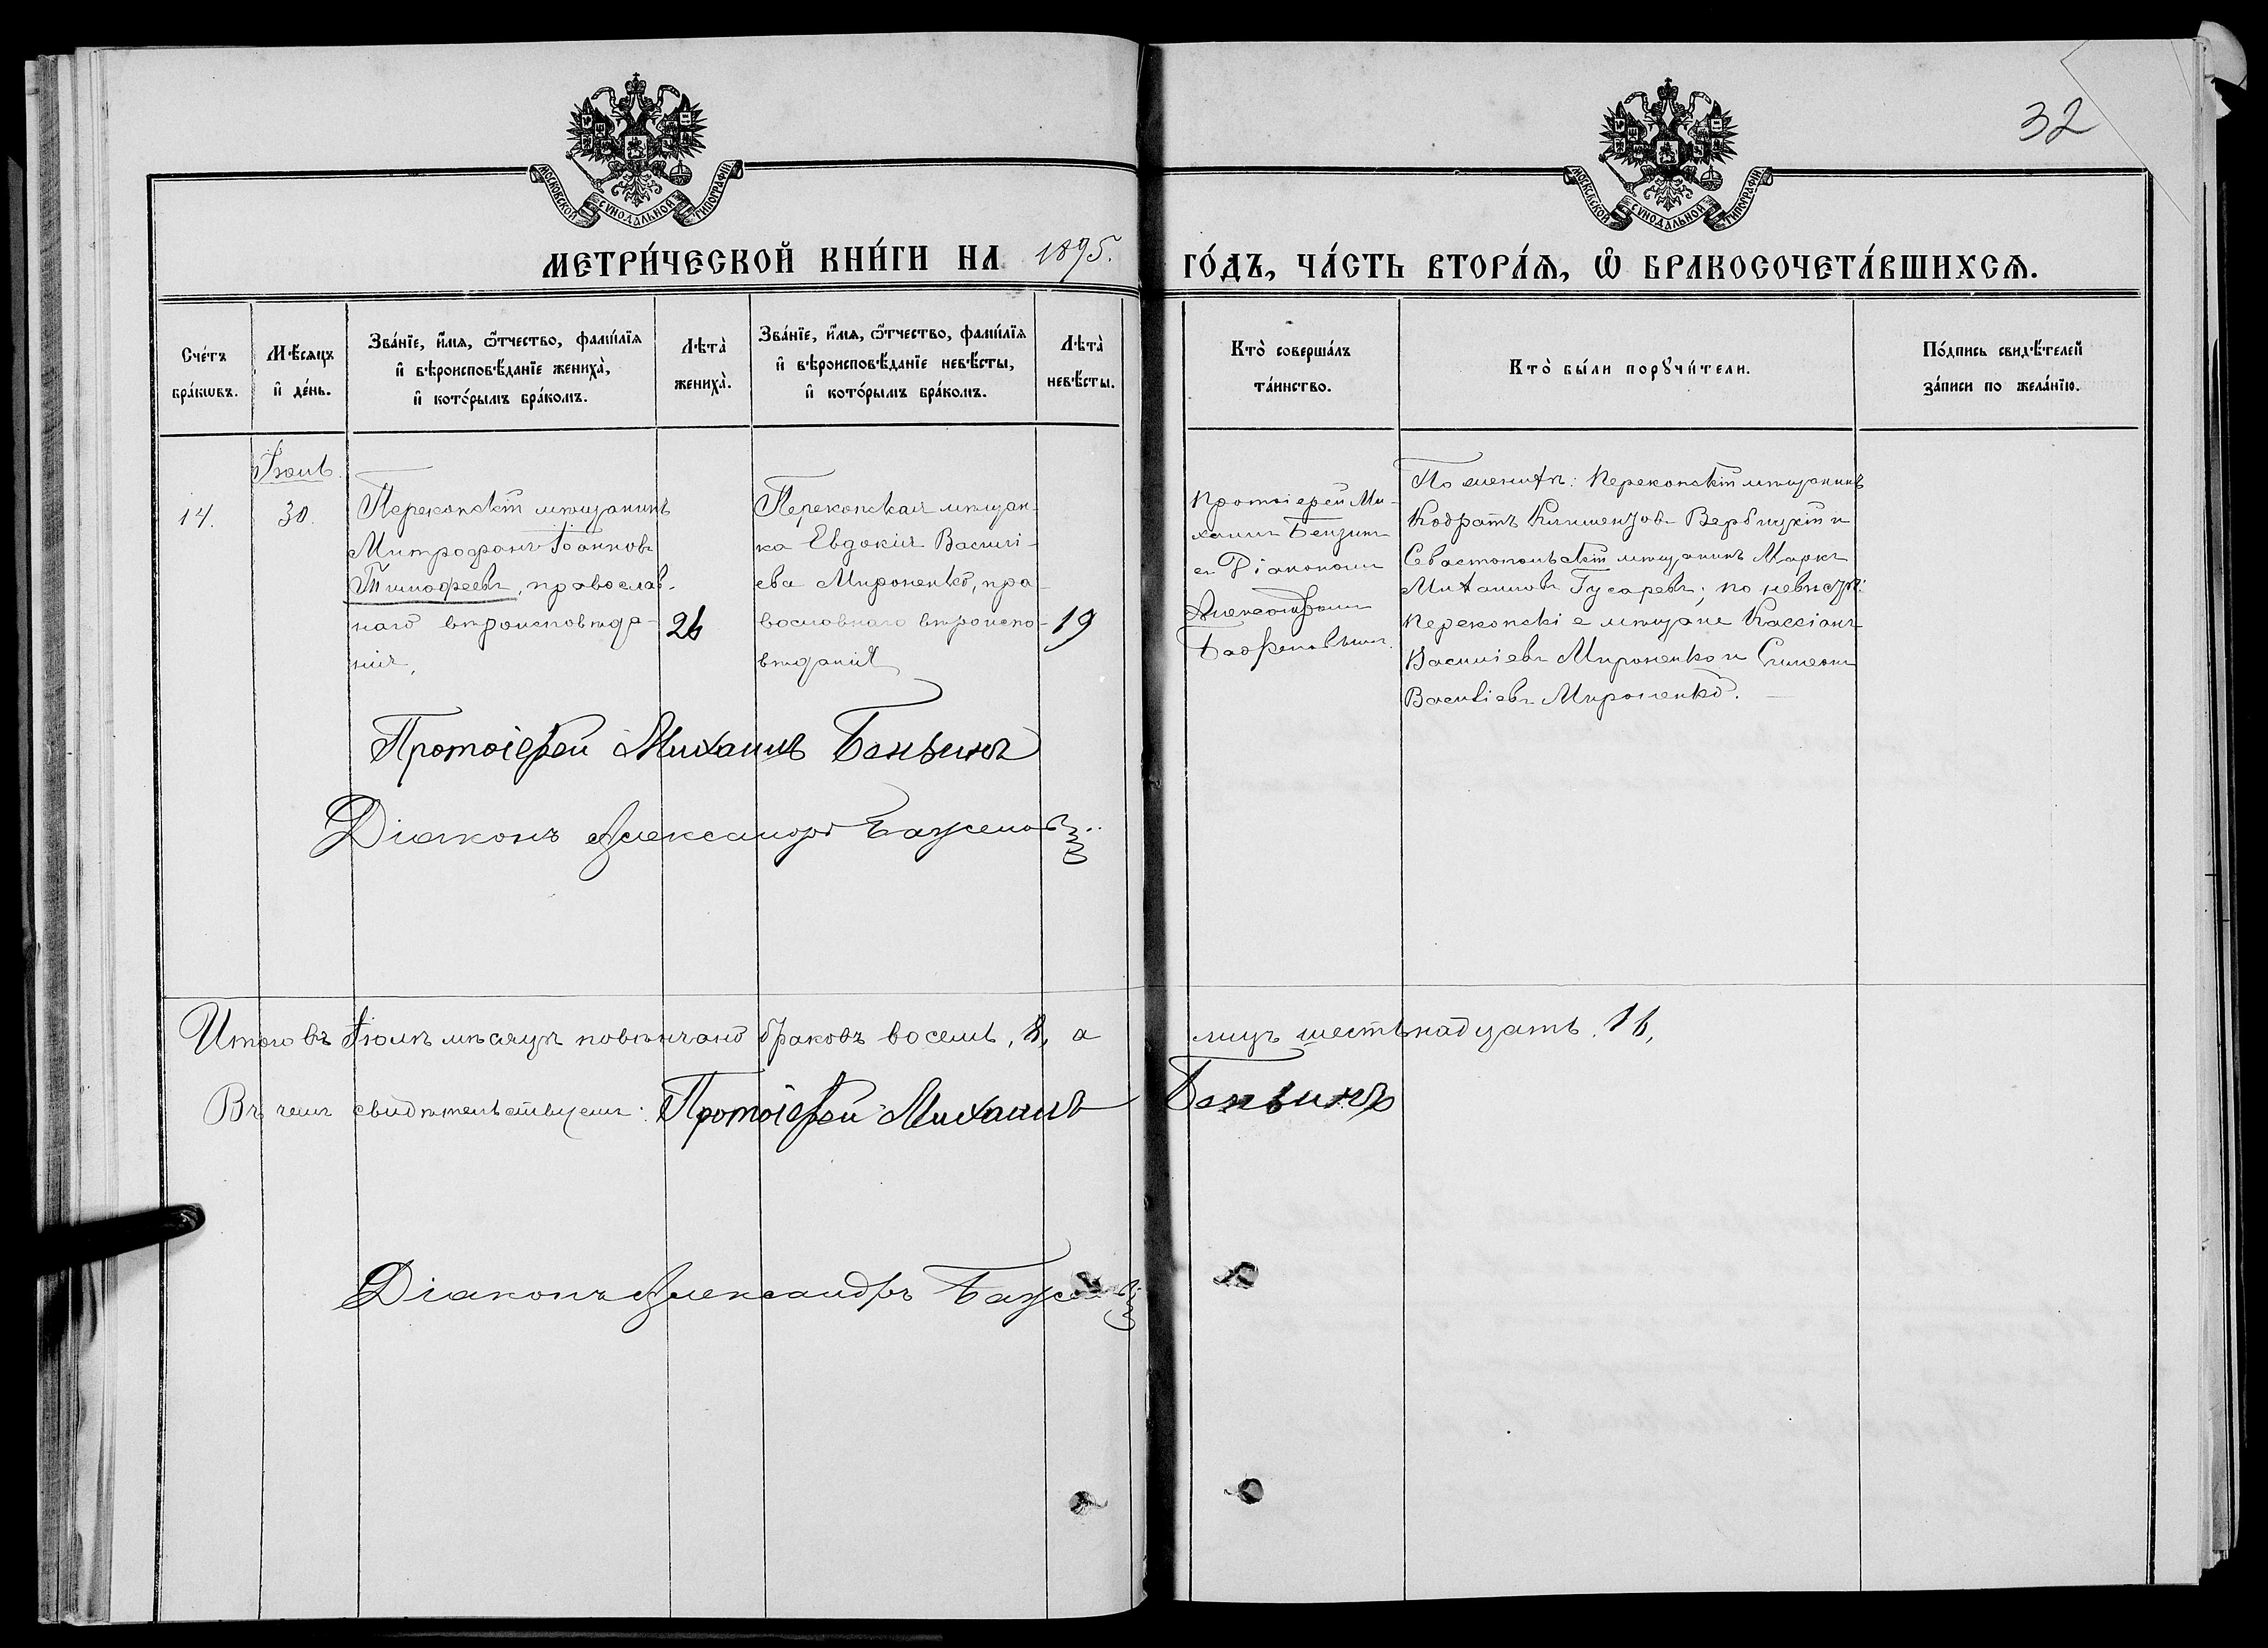 32
МОСКОВСКОЙ СѴНОДАЛЬНОЙ ТИПОГРАФІИ
МОСКОВСКОЙ СѴНОДАЛЬНОЙ ТИПОГРАФІИ
МЕТРИ́ЧЕСКОЙ КНИ́ГИ НА 1895. ГО́ДЪ, ЧА́СТЬ ВТОРА́Ѧ, Ѽ БРАКОСОЧЕТА́ВШИХСѦ.
Сче́тъ
бра́кѡвъ.
Мѣ́сяцъ
и҆ де́нь.
Зва́нїе, и҆́мѧ, ѻ҆́тчество, фамѝлїѧ
и҆ вѣроисповѣ́данїе жениха̀,
и҆ кото́рымъ бра́комъ.
Лѣта̀
жениха̀.
Зва́нїе, и҆́мѧ, ѻ҆́тчество, фамѝлїѧ
и҆ вѣроисповѣ́данїе невѣ́сты,
и҆ кото́рымъ бра́комъ.
Лѣта̀
невѣ́сты.
Кто̀ соверша́лъ
та́инство.
Кто̀ бы́ли порꙋчи́тели.
По́дпись свидѣ́телей
за́писи по жела́нїю.
14.
Іюль
30.
Перекопскій мѣщанинъ
Митрофанъ Іоанновъ
Тимофеевъ, православ-
наго вѣроисповѣда-
нія,
26
Перекопская мѣщан-
ка Евдокія Василі-
ева Мироненко, пра-
вославнаго вѣроиспо-
вѣданія
19
Протоіерей Ми-
хаилъ Бензинъ
съ Діакономъ
Александромъ
Баженовымъ.
По женихѣ: Перекопскій мѣщанинъ
Кодратъ Климентовъ Вербицкій и
Севастопольскій мѣщанинъ Маркъ
Михаиловъ Гусаревъ; по невѣстѣ:
Перекопскіе мѣщане Кассіанъ
Василіевъ Мироненко и Симеонъ
Василіевъ Мироненко.
Протоіерей Михаилъ Бензинъ
Діаконъ Александръ Баженовъ
Итого въ Іюлѣ мѣсяцѣ повѣнчано браковъ восемь, 8, а лицъ шестьнадцать. 16,
Въ чемъ свидѣтельствуемъ: Протоіерей Михаилъ Бензинъ
Діаконъ Александръ Баженовъ